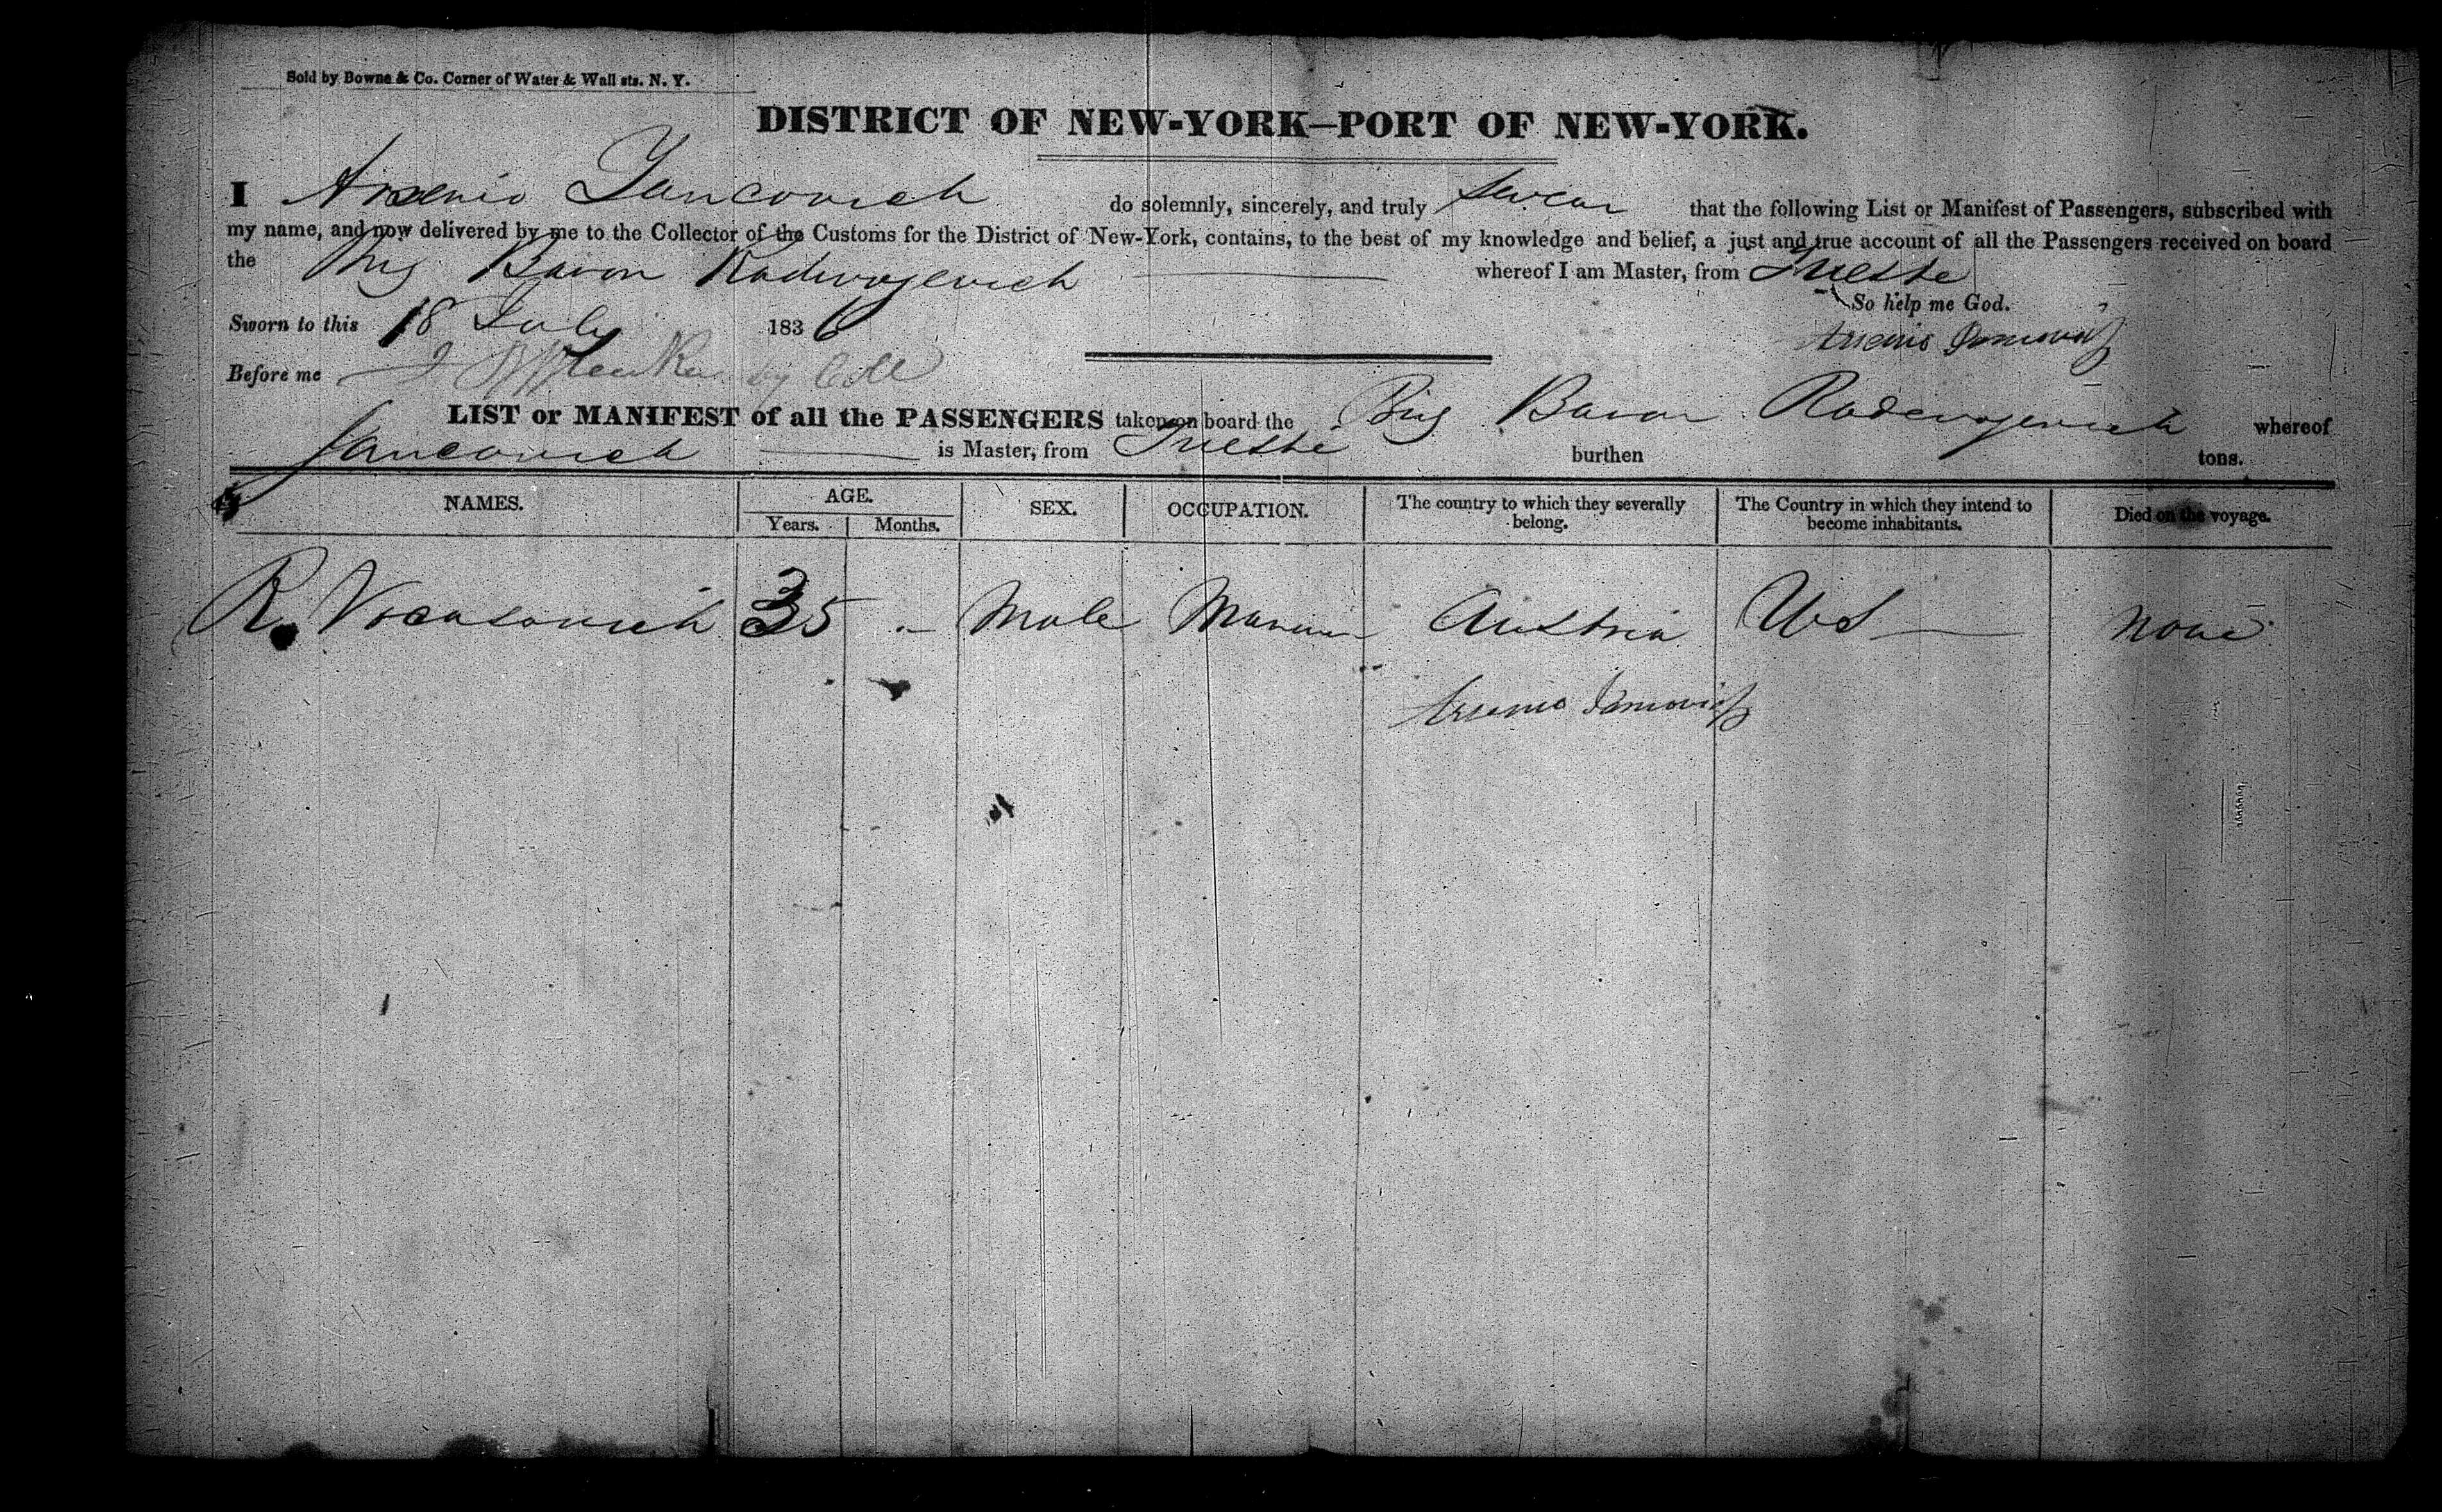 Sold by Bowne & Co. Corner of Water & Wall sts. N. Y.
DISTRICT OF NEW-YORK—PORT OF NEW-YORK.
I Arsenio Jancovich do solemnly, sincerely, and truly swear that the following List or Manifest of Passengers, subscribed with
my name, and now delivered by me to the Collector of the Customs for the District of New-York, contains, to the best of my knowledge and belief, a just and true account of all the Passengers received on board
the Brig Baron Radevojevich whereof I am Master, from Trieste
So help me God.
Sworn to this 18 July 1836
Arsenio
Before me Coll
LIST or MANIFEST of all the PASSENGERS taken on board the Brig Baron Radevojevich whereof
Jancovich is Master, from Trieste burthen tons.
NAMES. AGE. SEX. OCCUPATION. The country to which they severally belong. The Country in which they intend to become inhabitants. Died on the voyage.
Years. Months.
R. 35 - Male Mariner Austria US none
Arsenio